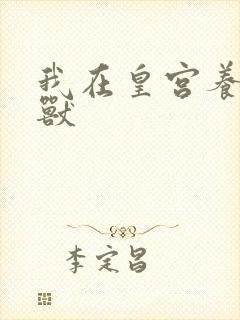 我在皇宫养
兽
李定昌